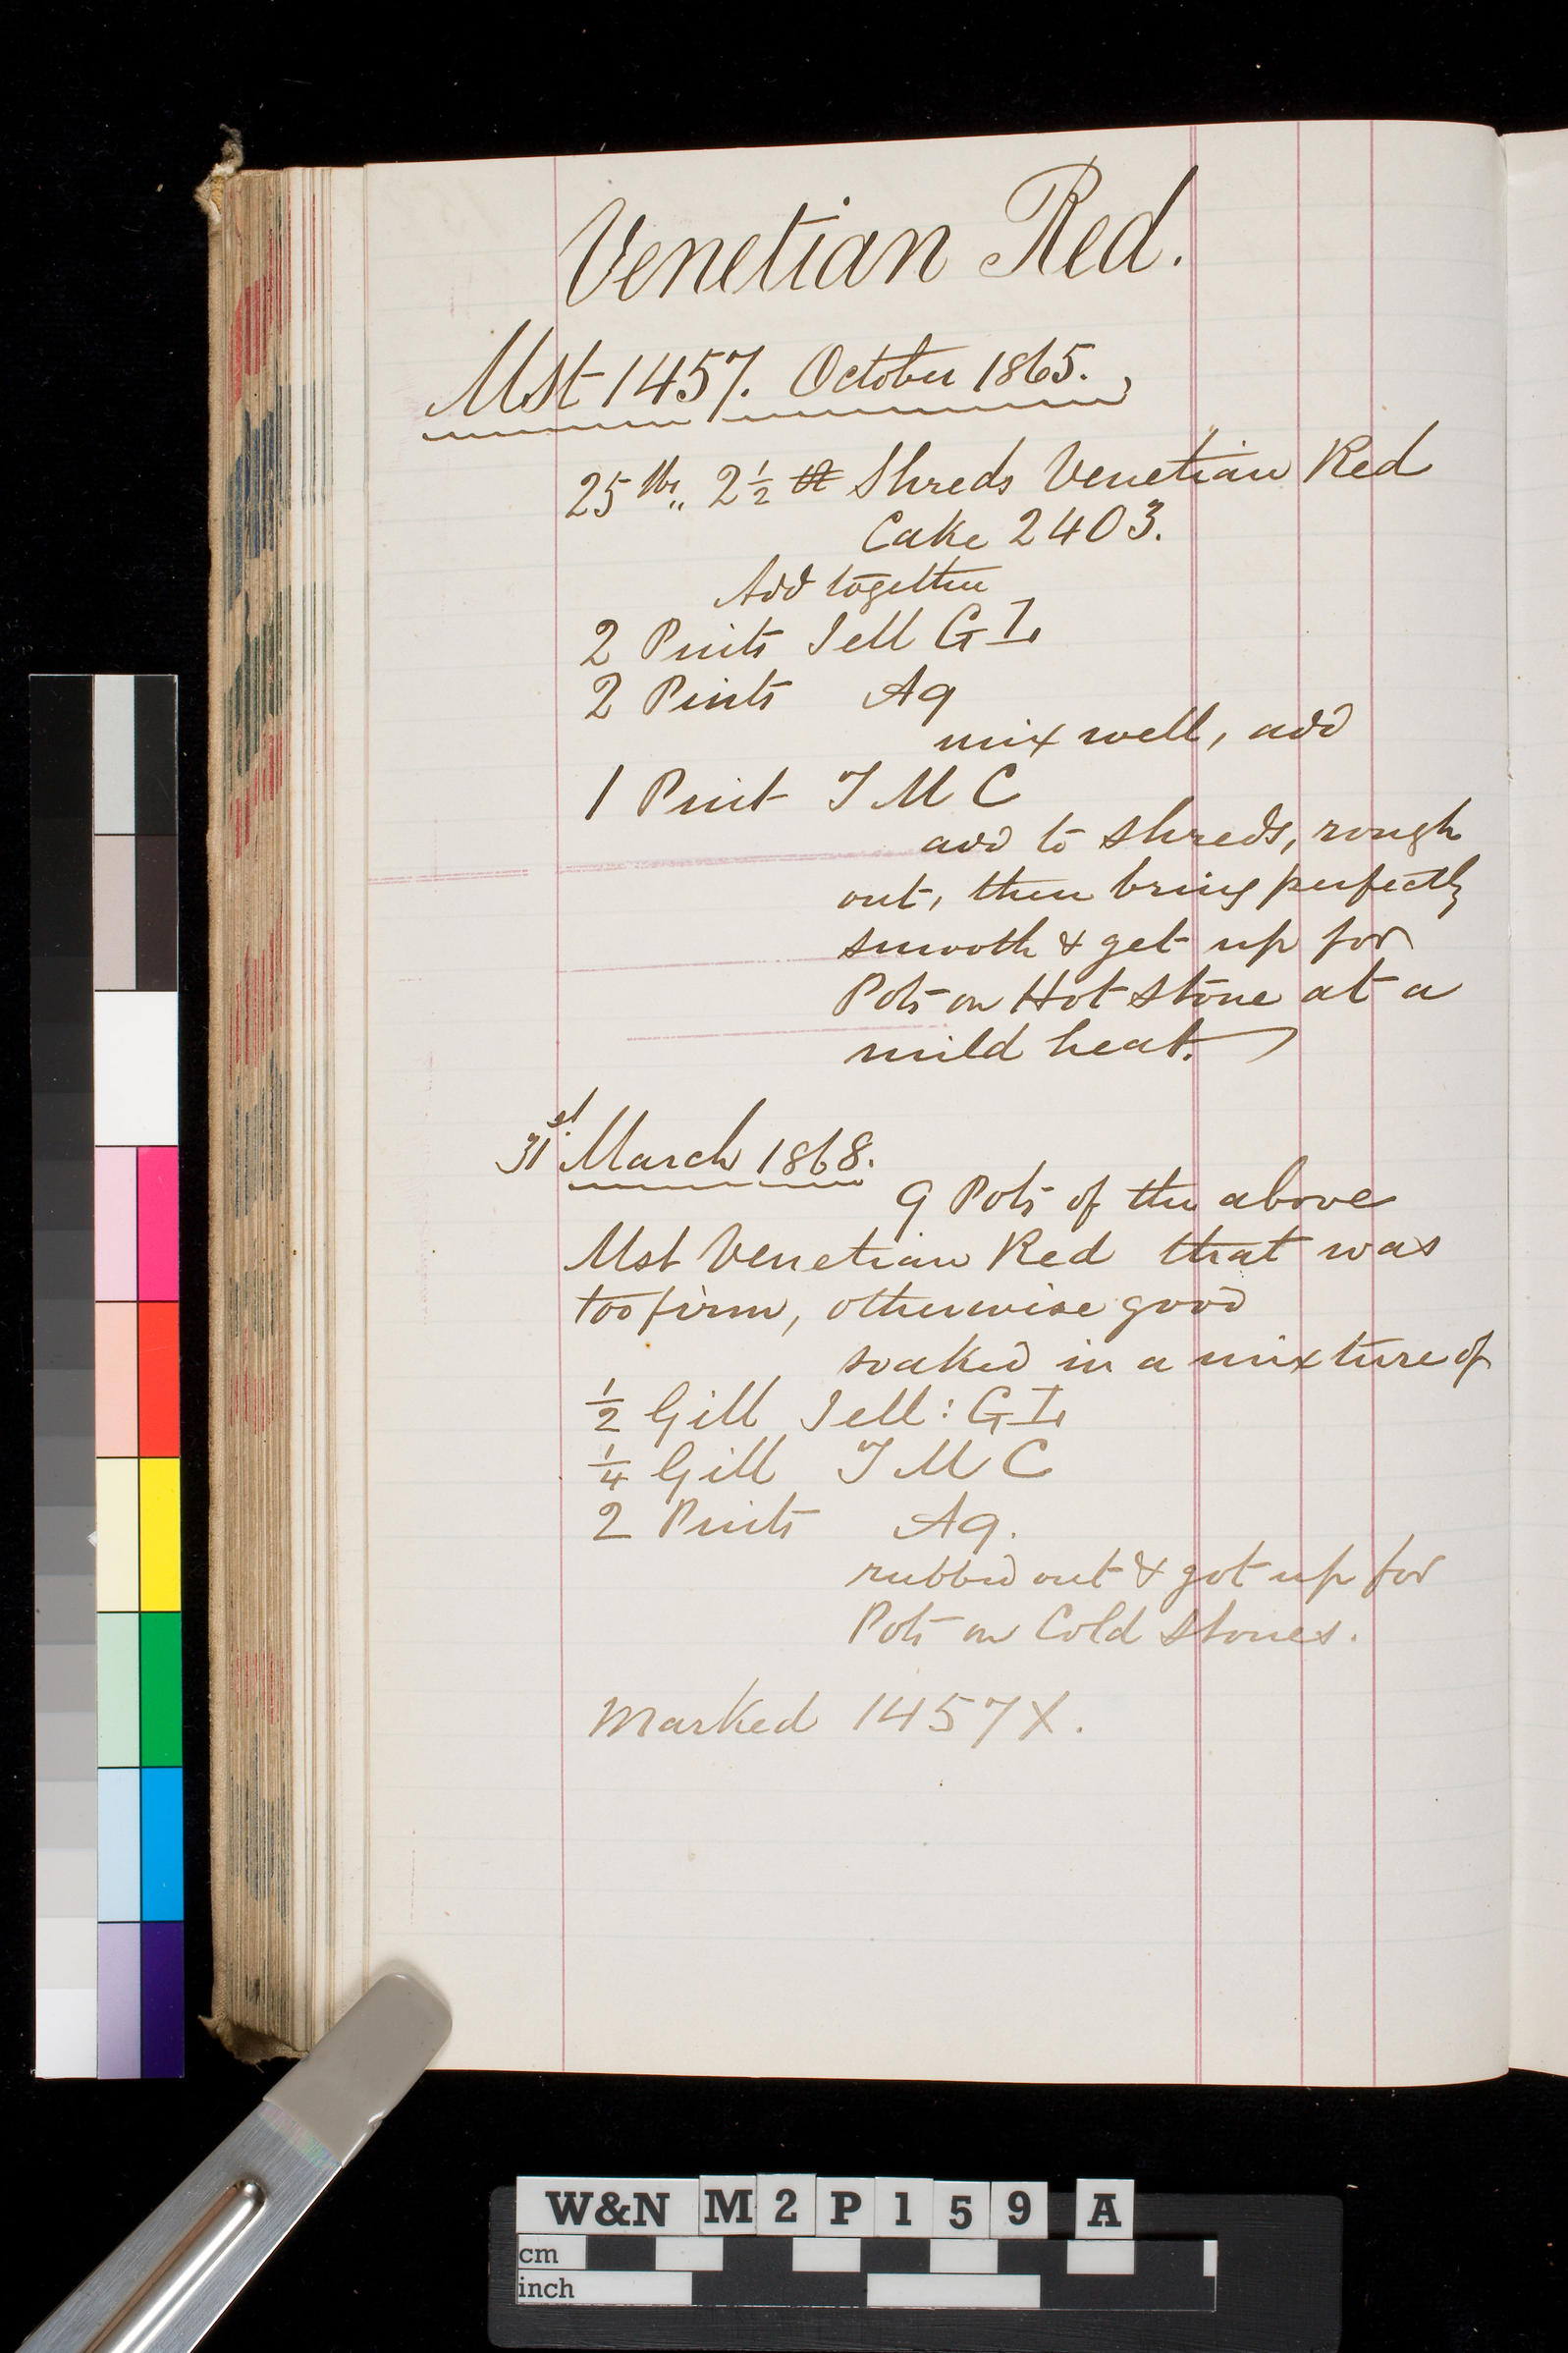 Venetian Red.
Mst 1457. October 1865.
25 lbs,, 2 1/2 ℔ Shreds Venetian Red
Cake 2403.
Add together
2 Pints Jell G I,
2 Pints Aq
mix well, add
1 Pint T M C
add to shreds, rough
out, then bring perfectly
smooth & get up for
Pots on Hot Stone at a
mild heat.
31st March 1868.
9 Pots of the above
Mst Venetian Red that was
too firm, otherwise good
soaked in a mixture of
1/2 Gill Jell: G I,
1/4 Gill T M C
2 Pints Aq.
rubbed out & got up for
Pots on Cold Stones.
Marked 1457X.
W&N M2P159 A
cm
inch